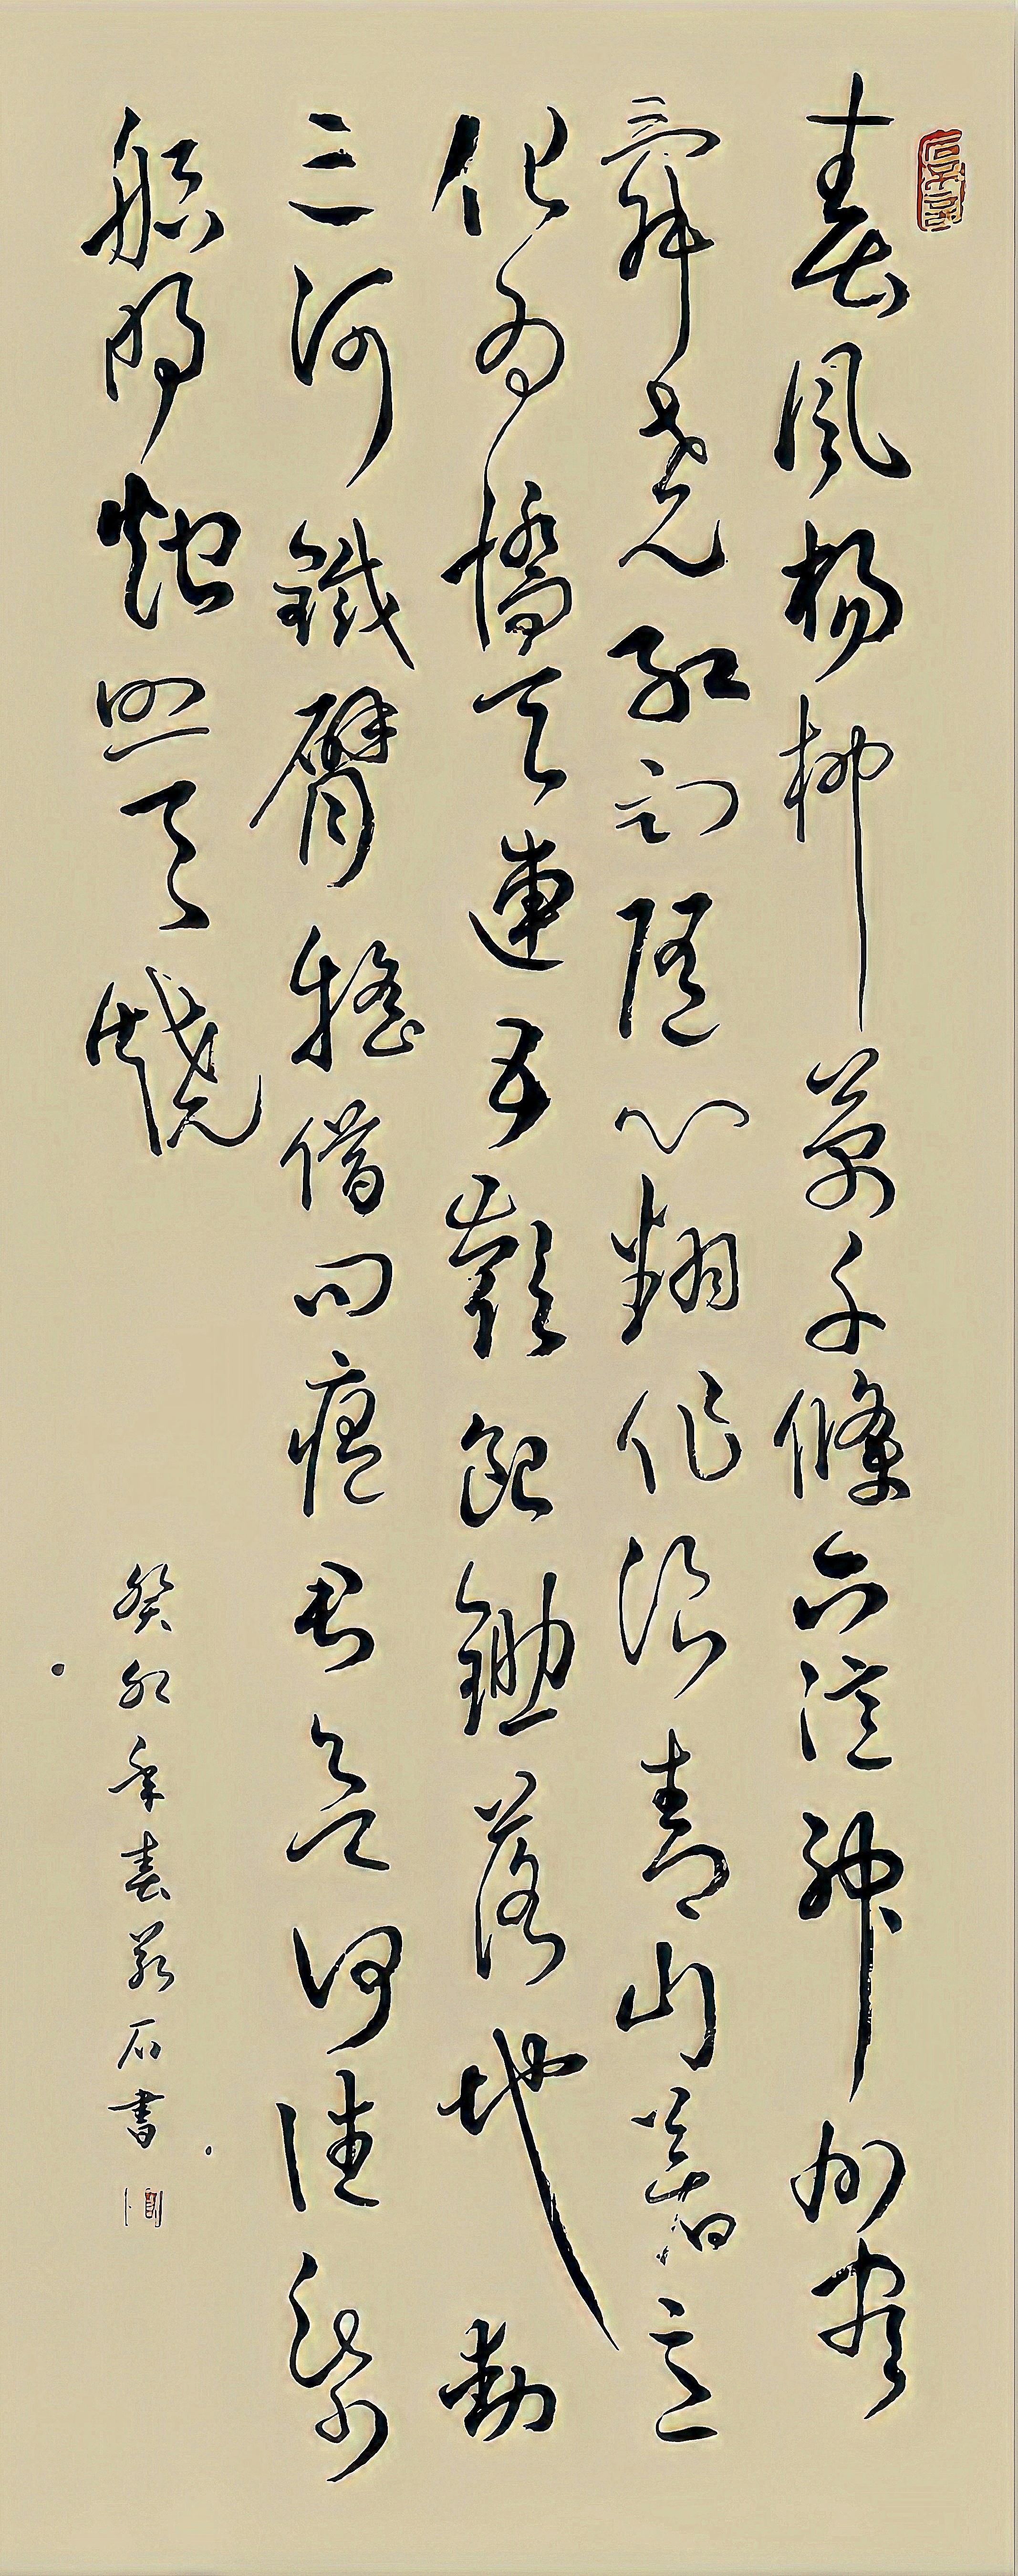 春風楊柳萬千條六億神州盡
舜堯紅雨隨心翻作浪青山著意
化為橋天連五嶺銀鋤落地動
三河鐵臂搖借問瘟君欲何往紙
船明燭照天燒
癸卯年春石書